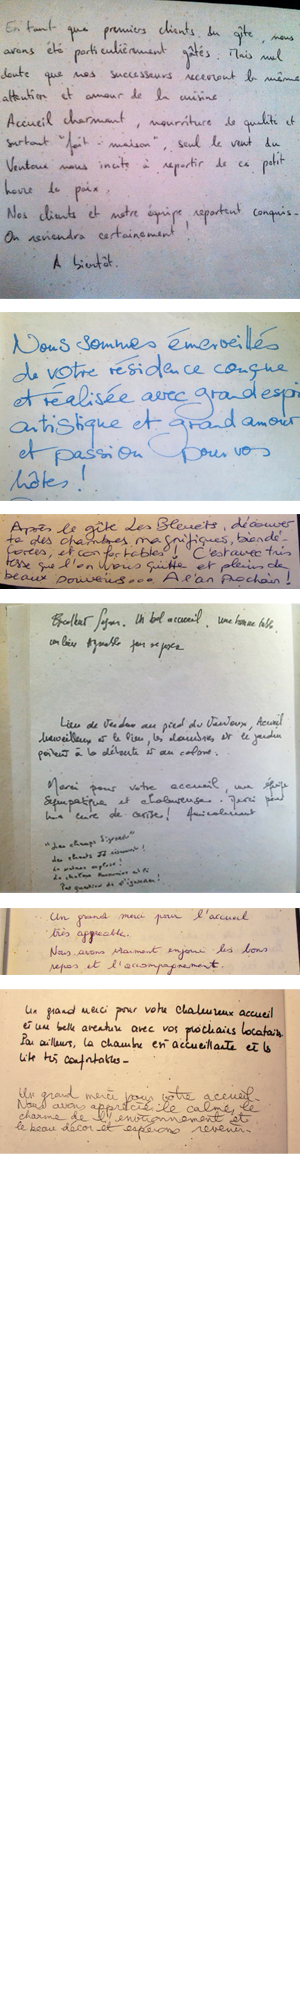 En tant que premiers clients du gîte, nous
avons été particulièrement gâtés. Mais nul
doute que nos successeurs recevront la même
attention et amour de la cuisine
Accueil charmant, nourriture de qualité et
surtout "fait-maison", seul le vent du
Ventoux nous incite à repartir de ce petit
havre de paix.
Nos clients et notre équipe repartent conquis.
On reviendra certainement!
A bientôt.
Nous sommes émerveillés
de votre résidence conçue
et réalisée avec grand espr
artistique et grand amour
et passion pour vos
hôtes!
Après le gîte Les Bleuets, découver
te des chambres magnifiques, bien dé-
corées, et confortables! C'est avec très
que l'on vous quitte et pleins de
beaux souvenirs... A l'an prochain!
Excellent séjour. Un bel accueil, une bonne table,
un lieu agréable pour se reposer
Lieu de verdure au pied du Ventoux, Accueil
merveilleux et le lieu, les chambres et le jardin
portent à la détente et au calme.
Merci pour votre accueil, une équipe
sympathique et chaleureuse. Merci pour
ma cure de cerises! Amicalement
"Les champs
des clients
Pas question de
Un grand merci pour l'accueil
très aggreable.
Nous avons vraiment enjoué les bons
repas et l'accompagnement.
Un grand merci pour votre chaleureux accueil
et une belle aventure avec vos prochains locatair
Par ailleurs, la chambre est accueillante et les
lits très confortables-
Un grand merci pour votre accueil.
Nous avons apprécié le calme, le
charme de l'environnement et
le beau décor et espérons revenir.